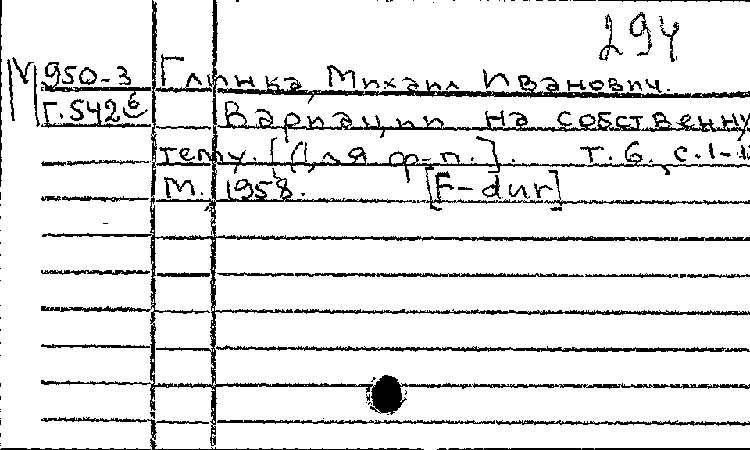 294
М 950-3 Глинка, Михаил Иванович.
Г.542б Вариации на собственну
тему. [Для ф-п.]. Т. 6., с. 1-
М., 1958. [F-dur]